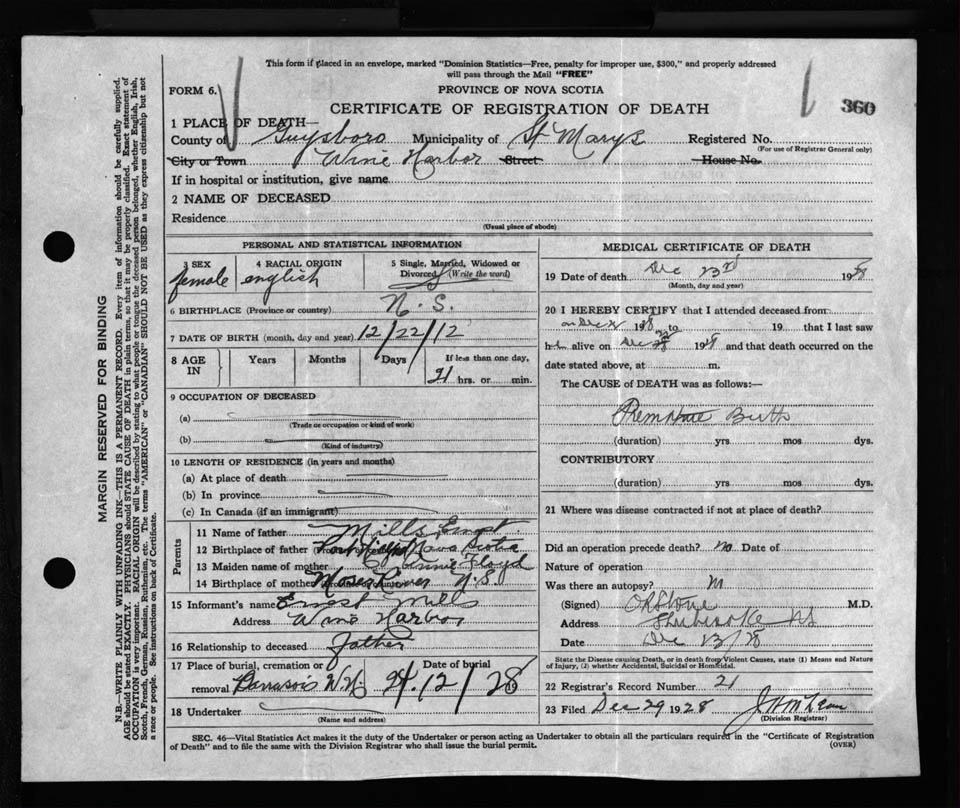 This form if placed in an envelope, marked "Dominion Statistics—Free, penalty for improper use, $300," and properly addressed
will pass through the Mail "FREE"
FORM 6.
PROVINCE OF NOVA SCOTIA
CERTIFICATE OF REGISTRATION OF DEATH
360
1 PLACE OF DEATH—
County of Guysboro Municipality of St Marys Registered No.
(For use of Registrar General only)
City or Town Wine Harbor Street House No.
If in hospital or institution, give name
2 NAME OF DECEASED
Residence
(Usual place of abode)
PERSONAL AND STATISTICAL INFORMATION
3 SEX 4 RACIAL ORIGIN 5 Single, Married, Widowed or Divorced (Write the word)
female english S
6 BIRTHPLACE (Province or country) N. S.
7 DATE OF BIRTH (month, day and year) 12/22/12
8 AGE IN Years Months Days If less than one day,
21 hrs. or min.
9 OCCUPATION OF DECEASED
(a)
(Trade or occupation or kind of work)
(b)
(Kind of industry)
10 LENGTH OF RESIDENCE (in years and months)
(a) At place of death
(b) In province
(c) In Canada (if an immigrant)
Parents
11 Name of father Mills
12 Birthplace of father Nova Scotia
13 Maiden name of mother Annie Floyd
14 Birthplace of mother Moses River N.S.
15 Informant's name Ernest Mills
Address Wine Harbor
16 Relationship to deceased father
17 Place of burial, cremation or removal Date of burial
24.12/28
18 Undertaker
(Name and address)
MEDICAL CERTIFICATE OF DEATH
19 Date of death Dec 23rd 1928
(Month, day and year)
20 I HEREBY CERTIFY that I attended deceased from
on Dec 192 to 19 that I last saw
h alive on Dec 192 and that death occurred on the
date stated above, at m.
The CAUSE of DEATH was as follows:—
Premature Birth
(duration) yrs mos dys.
CONTRIBUTORY
(duration) yrs mos dys.
21 Where was disease contracted if not at place of death?
Did an operation precede death? no Date of
Nature of operation
Was there an autopsy?
(Signed) M.D.
Address Sherbrooke NS
Date Dec 23/28
State the Disease causing Death, or in death from Violent Causes, state (1) Means and Nature
of Injury, (2) whether Accidental, Suicidal or Homicidal.
22 Registrar's Record Number 21
23 Filed Dec 29 1928
(Division Registrar)
SEC. 46—Vital Statistics Act makes it the duty of the Undertaker or person acting as Undertaker to obtain all the particulars required in the "Certificate of Registration
of Death" and to file the same with the Division Registrar who shall issue the burial permit.
(OVER)
MARGIN RESERVED FOR BINDING
N.B.—WRITE PLAINLY WITH UNFADING INK—THIS IS A PERMANENT RECORD. Every item of information should be carefully supplied.
AGE should be stated EXACTLY. PHYSICIANS should STATE CAUSE OF DEATH in plain terms, so that it may be properly classified. Exact statement of
OCCUPATION is very important. RACIAL ORIGIN will be described by stating to what people or tongue the deceased person belonged, whether English, Irish,
Scotch, French, German, Russian, Ruthenian, etc. The terms "AMERICAN" or "CANADIAN" SHOULD NOT BE USED as they express citizenship but not
a race or people. See instructions on back of Certificate.